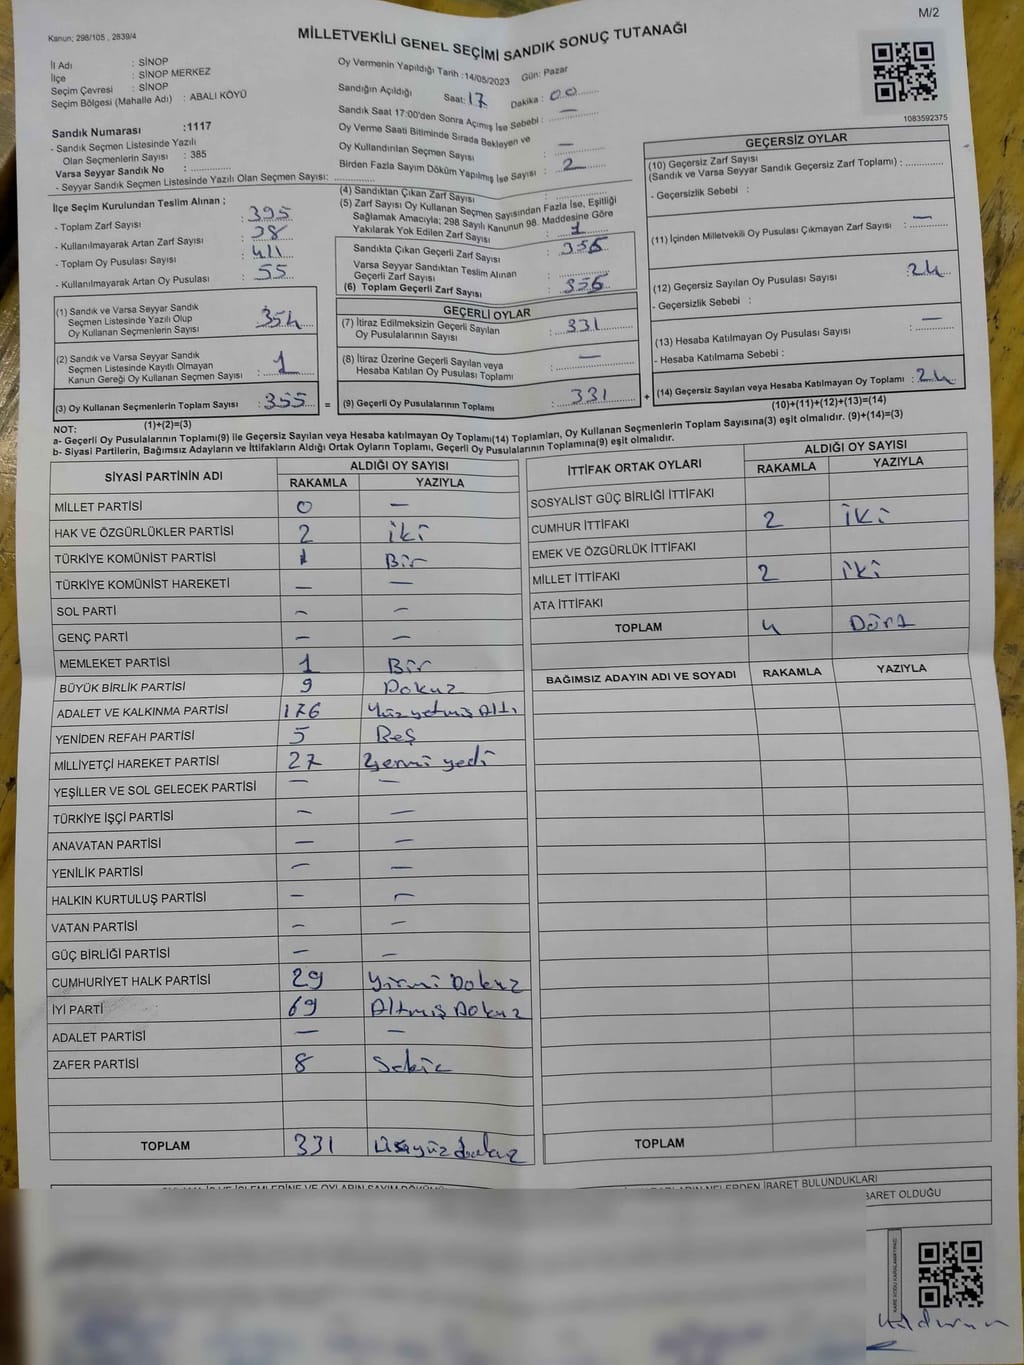 M/2
Kanun; 298/105 , 2839/4
MİLLETVEKİLİ GENEL SEÇİMİ SANDIK SONUÇ TUTANAĞI
İl Adı : SİNOP
İlçe : SİNOP MERKEZ
Seçim Çevresi : SİNOP
Seçim Bölgesi (Mahalle Adı) : ABALI KÖYÜ
Oy Vermenin Yapıldığı Tarih :14/05/2023 Gün: Pazar
Sandığın Açıldığı Saat: 17 Dakika : 00
Sandık Saat 17:00'den Sonra Açmış İse Sebebi : —
Oy Verme Saati Bitiminde Sırada Bekleyen ve
Oy Kullandırılan Seçmen Sayısı : —
Birden Fazla Sayım Döküm Yapılmış İse Sayısı : 2
1083592375
Sandık Numarası :1117
- Sandık Seçmen Listesinde Yazılı
Olan Seçmenlerin Sayısı : 385
Varsa Seyyar Sandık No :
- Seyyar Sandık Seçmen Listesinde Yazılı Olan Seçmen Sayısı:
İlçe Seçim Kurulundan Teslim Alınan ;
- Toplam Zarf Sayısı : 395
- Kullanılmayarak Artan Zarf Sayısı : 38
- Toplam Oy Pusulası Sayısı : 411
- Kullanılmayarak Artan Oy Pusulası : 55
(1) Sandık ve Varsa Seyyar Sandık
Seçmen Listesinde Yazılı Olup
Oy Kullanan Seçmenlerin Sayısı : 354
(2) Sandık ve Varsa Seyyar Sandık
Seçmen Listesinde Kayıtlı Olmayan
Kanun Gereği Oy Kullanan Seçmen Sayısı : 1
(3) Oy Kullanan Seçmenlerin Toplam Sayısı : 355 =
(1)+(2)=(3)
(4) Sandıktan Çıkan Zarf Sayısı :
(5) Zarf Sayısı Oy Kullanan Seçmen Sayısından Fazla İse, Eşitliği
Sağlamak Amacıyla; 298 Sayılı Kanunun 98. Maddesine Göre
Yakılarak Yok Edilen Zarf Sayısı : 1
Sandıkta Çıkan Geçerli Zarf Sayısı : 356
Varsa Seyyar Sandıktan Teslim Alınan
Geçerli Zarf Sayısı :
(6) Toplam Geçerli Zarf Sayısı : 356
GEÇERLİ OYLAR
(7) İtiraz Edilmeksizin Geçerli Sayılan
Oy Pusulalarının Sayısı : 331
(8) İtiraz Üzerine Geçerli Sayılan veya
Hesaba Katılan Oy Pusulası Toplamı : —
(9) Geçerli Oy Pusulalarının Toplamı : 331 +
GEÇERSİZ OYLAR
(10) Geçersiz Zarf Sayısı
(Sandık ve Varsa Seyyar Sandık Geçersiz Zarf Toplamı) :
- Geçersizlik Sebebi :
(11) İçinden Milletvekili Oy Pusulası Çıkmayan Zarf Sayısı : —
(12) Geçersiz Sayılan Oy Pusulası Sayısı : 24
- Geçersizlik Sebebi :
(13) Hesaba Katılmayan Oy Pusulası Sayısı : —
- Hesaba Katılmama Sebebi :
(14) Geçersiz Sayılan veya Hesaba Katılmayan Oy Toplamı : 24
(10)+(11)+(12)+(13)=(14)
NOT:
a- Geçerli Oy Pusulalarının Toplamı(9) ile Geçersiz Sayılan veya Hesaba katılmayan Oy Toplamı(14) Toplamları, Oy Kullanan Seçmenlerin Toplam Sayısına(3) eşit olmalıdır. (9)+(14)=(3)
b- Siyasi Partilerin, Bağımsız Adayların ve İttifakların Aldığı Ortak Oyların Toplamı, Geçerli Oy Pusulalarının Toplamına(9) eşit olmalıdır.
SİYASİ PARTİNİN ADI ALDIĞI OY SAYISI
RAKAMLA YAZIYLA
MİLLET PARTİSİ 0 —
HAK VE ÖZGÜRLÜKLER PARTİSİ 2 iki
TÜRKİYE KOMÜNİST PARTİSİ 1 Bir
TÜRKİYE KOMÜNİST HAREKETİ — —
SOL PARTİ — —
GENÇ PARTİ — —
MEMLEKET PARTİSİ 1 Bir
BÜYÜK BİRLİK PARTİSİ 9 Dokuz
ADALET VE KALKINMA PARTİSİ 176 Yüz yetmiş Altı
YENİDEN REFAH PARTİSİ 5 Beş
MİLLİYETÇİ HAREKET PARTİSİ 27 yedi
YEŞİLLER VE SOL GELECEK PARTİSİ — —
TÜRKİYE İŞÇİ PARTİSİ — —
ANAVATAN PARTİSİ — —
YENİLİK PARTİSİ — —
HALKIN KURTULUŞ PARTİSİ — —
VATAN PARTİSİ — —
GÜÇ BİRLİĞİ PARTİSİ — —
CUMHURİYET HALK PARTİSİ 29 Yirmi Dokuz
İYİ PARTİ 69 Altmış Dokuz
ADALET PARTİSİ — —
ZAFER PARTİSİ 8 Sekiz
TOPLAM 331
İTTİFAK ORTAK OYLARI ALDIĞI OY SAYISI
RAKAMLA YAZIYLA
SOSYALİST GÜÇ BİRLİĞİ İTTİFAKI
CUMHUR İTTİFAKI 2 iki
EMEK VE ÖZGÜRLÜK İTTİFAKI
MİLLET İTTİFAKI 2 iki
ATA İTTİFAKI
TOPLAM 4 Dört
BAĞIMSIZ ADAYIN ADI VE SOYADI RAKAMLA YAZIYLA
TOPLAM
NELERDEN İBARET BULUNDUKLARI
BARET OLDUĞU